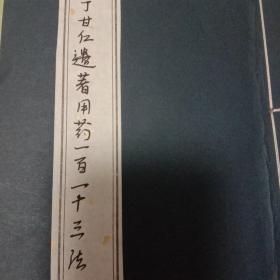 丁甘仁遗著用药一百一十三法